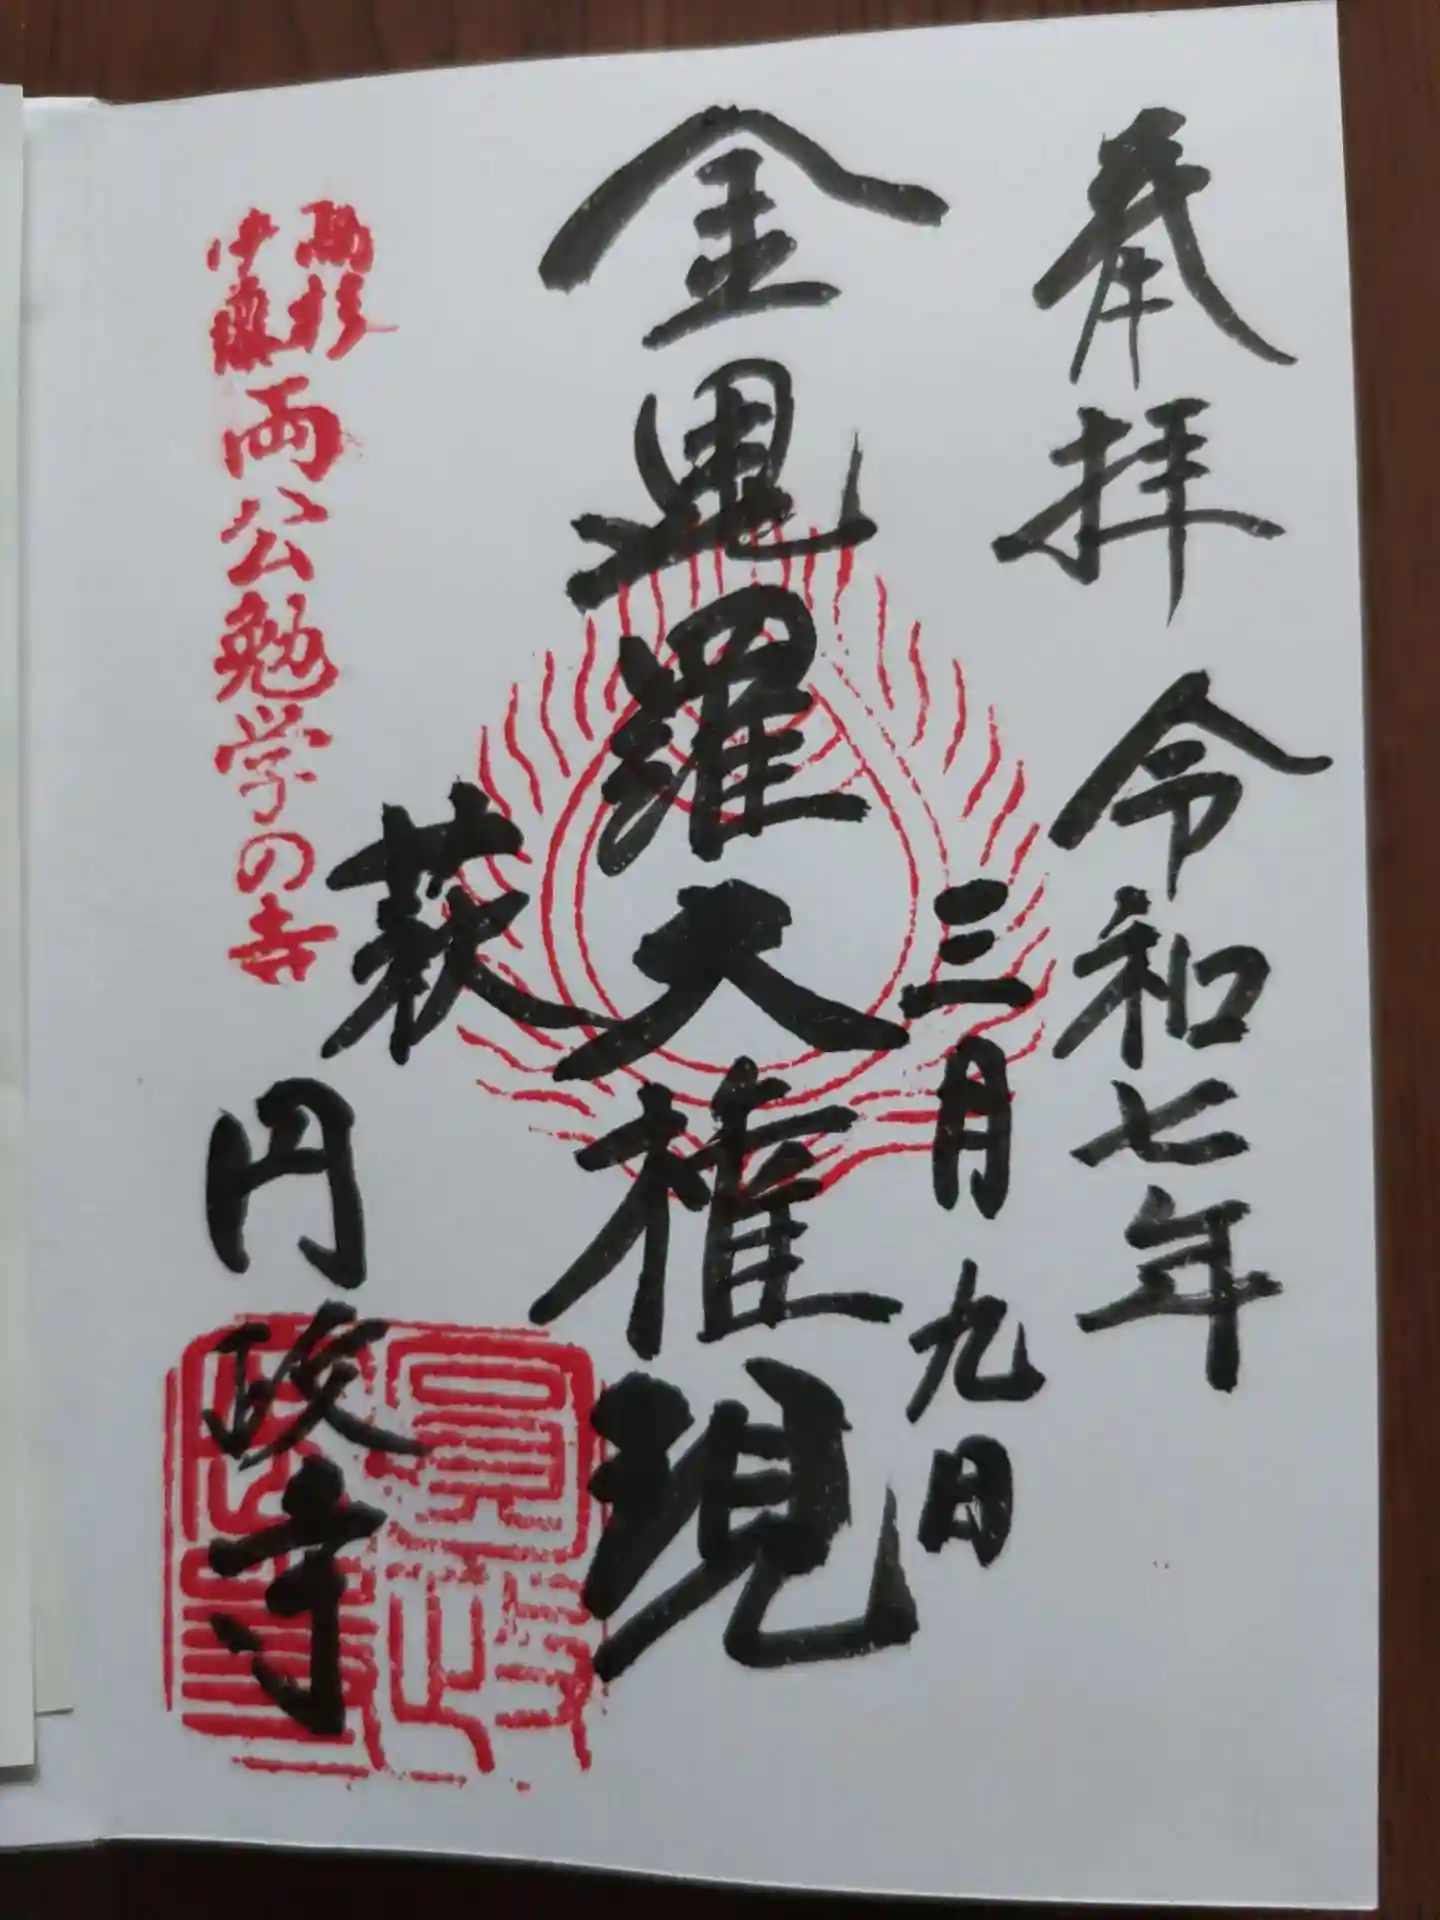 奉拝 令和七年
三月九日
金毘羅大権現
萩
円政寺
高杉
伊藤
両公勉学の寺